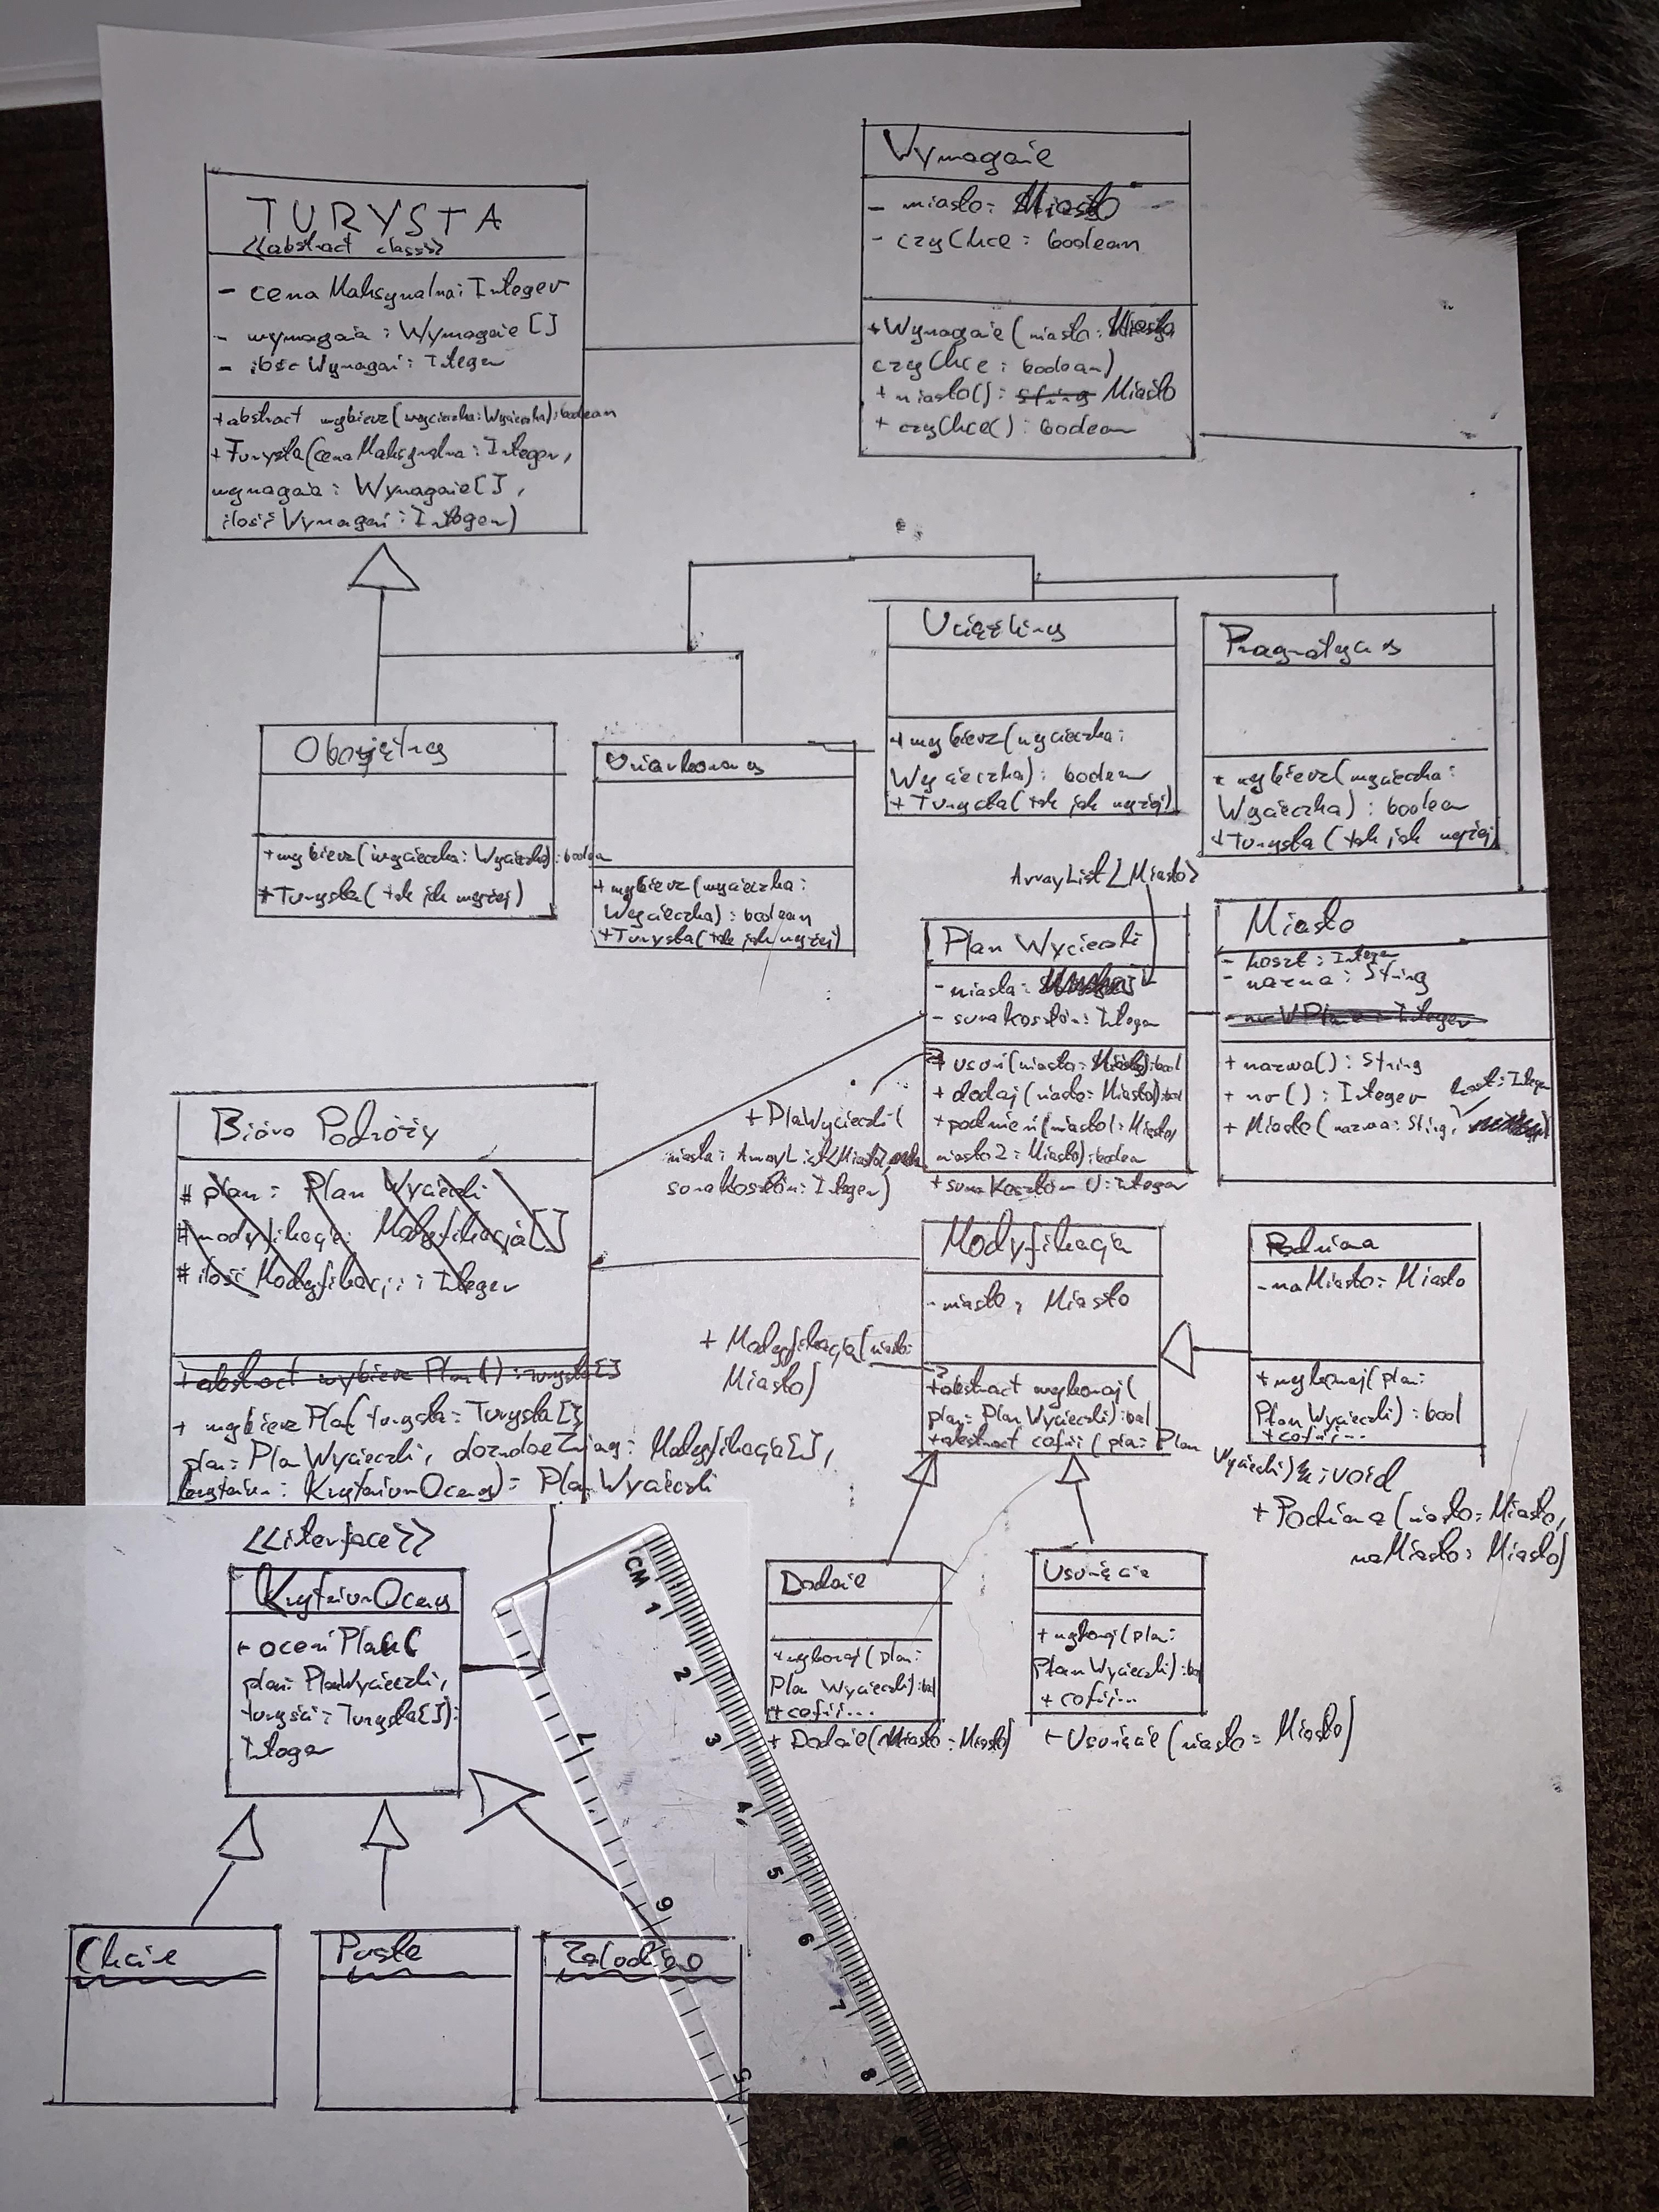 TURYSTA
<<abstract class>>
- cena Maksymalna: Integer
- wymagania: Wymaganie []
- ilość Wymagań: Integer
+abstract wybierz(wycieczka: Wycieczka): boolean
+Turysta(cena Maksymalna: Integer,
wymagania: Wymaganie[],
ilość Wymagań: Integer)
Wymaganie
- miasto: Miasto
- czyChce: boolean
+ Wymaganie(miasto: Miasto,
czyChce: boolean)
+ miasto(): String Miasto
+ czyChce(): boolean
Obojętny
+wybierz(wycieczka: Wycieczka): boolean
+Turysta(tak jak wyżej)
Umiarkowany
+wybierz(wycieczka:
Wycieczka): boolean
+Turysta(tak jak wyżej)
Uciążliwy
+wybierz(wycieczka:
Wycieczka): boolean
+ Turysta(tak jak wyżej)
Pragmatyczny
+ wybierz(wycieczka:
Wycieczka): boolean
+Turysta(tak jak wyżej)
ArrayList<Miasto>
Plan Wycieczki
- miasta:
- suma kosztów: Integer
+ usuń(miasto: Miasto): bool
+ dodaj(miasto: Miasto): bool
+ podmień(miasto1: Miasto,
miasto2: Miasto): boolean
+ suma Kosztów(): Integer
+ PlanWycieczki(
miasta: ArrayList<Miasto>,
suma Kosztów: Integer)
Miasto
- koszt: Integer
- nazwa: String
- nr W Planie: Integer
+ nazwa(): String
+ nr(): Integer
koszt: Integer
+ Miasto(nazwa: String,
Biuro Podróży
# plan: Plan Wycieczki
# modyfikacje: Modyfikacja[]
# ilość Modyfikacji: Integer
+abstract wybierz Plan(): Turysta[]
+ wybierz Plan(turysta: Turysta[],
plan: Plan Wycieczki, Modyfikacja[],
kryterium: KryteriumOceny): Plan Wycieczki
Modyfikacja
- miasto: Miasto
+ Modyfikacja(miasto:
Miasto)
+abstract wykonaj(
plan: Plan Wycieczki): bool
+abstract cofnij(plan: Plan
Wycieczki): void
Podmiana
- naMiasto: Miasto
+ wykonaj(plan:
Plan Wycieczki): bool
+ cofnij...
+ Podmiana(miasto: Miasto,
naMiasto: Miasto)
<<interface>>
KryteriumOceny
+ oceń Plan(
plan: PlanWycieczki,
turyści: Turysta[]):
Integer
Dodanie
+wykonaj(plan:
Plan Wycieczki): bool
+ cofnij...
+ Dodanie(Miasto: Miasto)
Usunięcie
+ wykonaj(plan:
Plan Wycieczki): bool
+ cofnij...
+ Usunięcie(miasto: Miasto)
Chciwe
Puste
CM
1
2
3
4
5
6
7
8